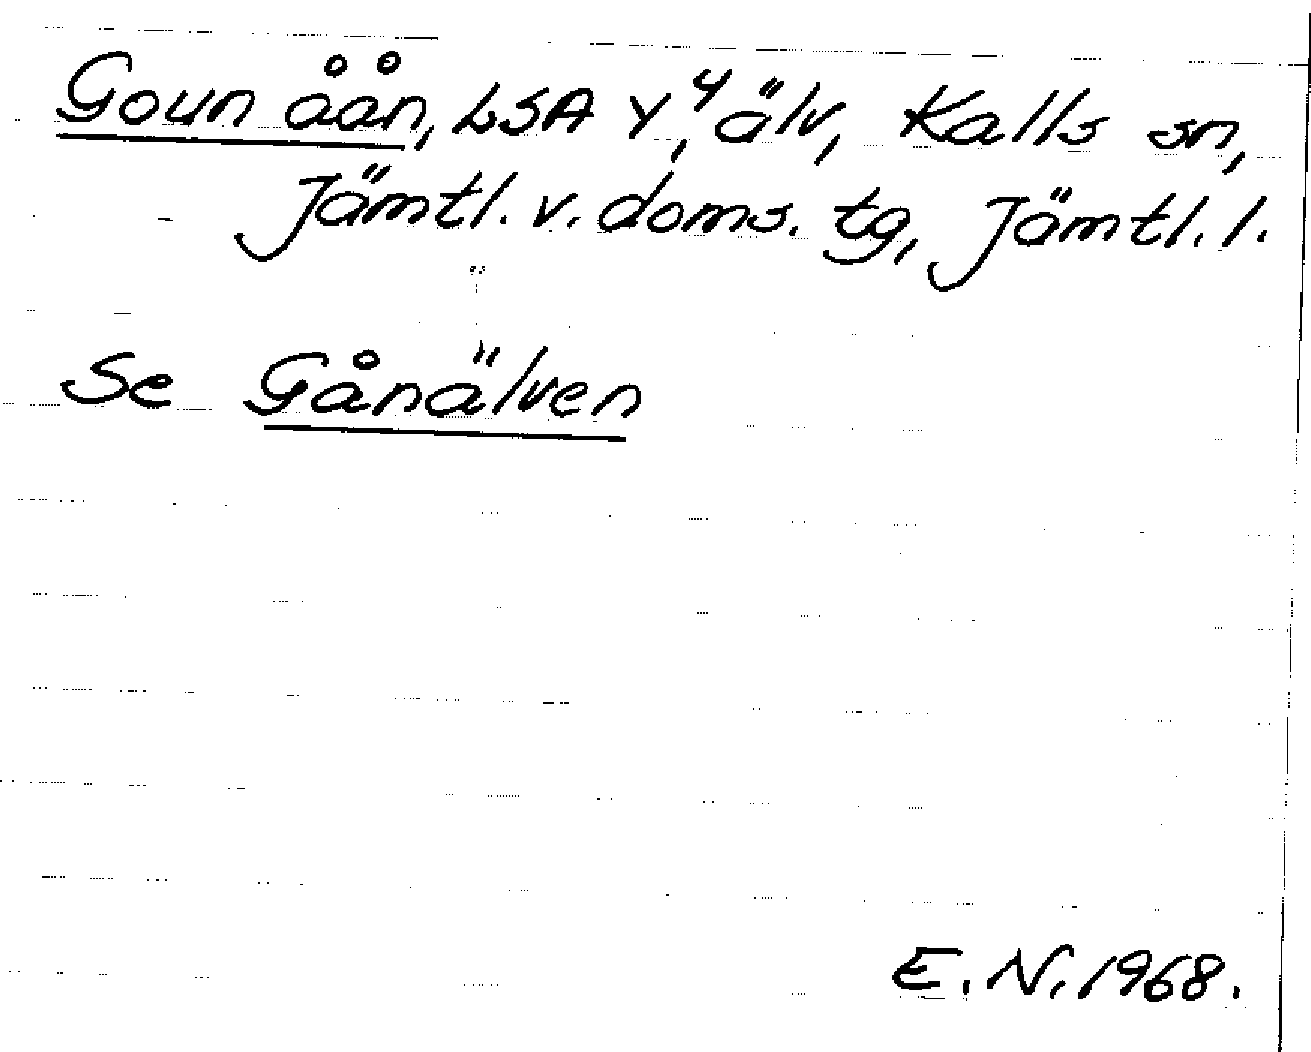 Goun åån, LSA Y⁴, älv, Kalls sn,
Jämtl. v. doms. tg, Jämtl. l.
Se Gånälven
E. N. 1968.